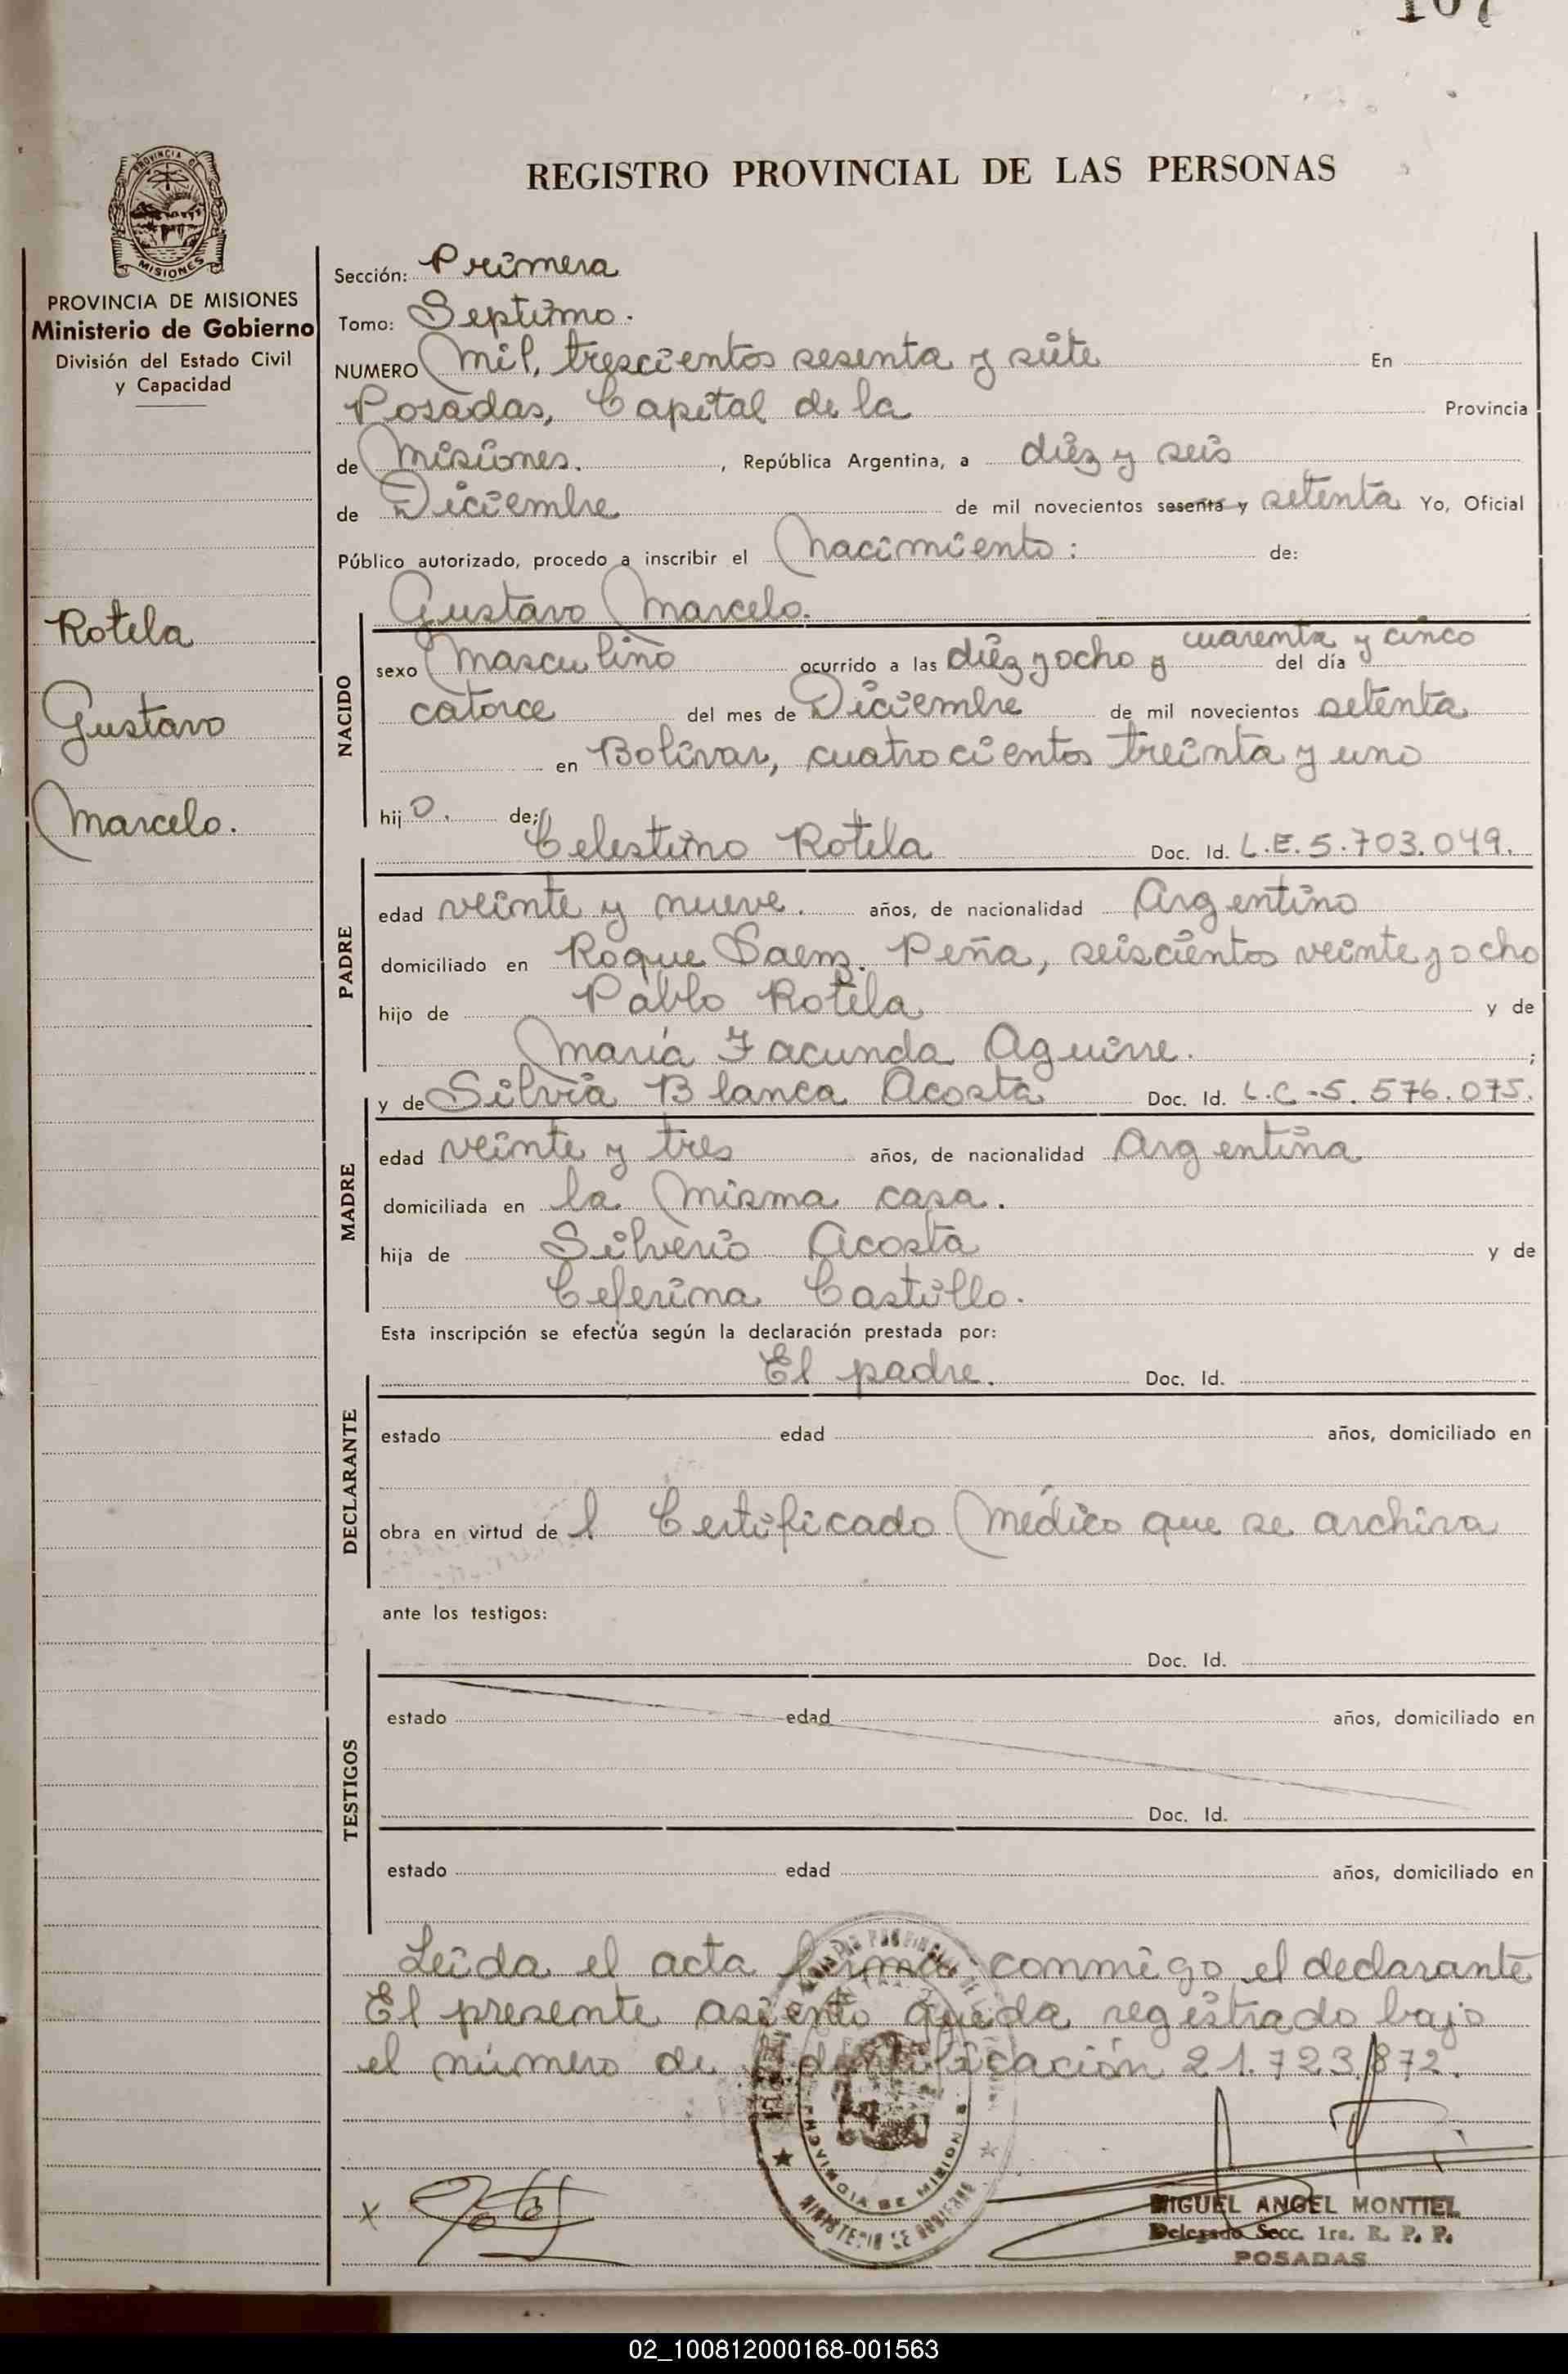 107
REGISTRO PROVINCIAL DE LAS PERSONAS
PROVINCIA DE
MISIONES
PROVINCIA DE MISIONES
Ministerio de Gobierno
División del Estado Civil
y Capacidad
Rotela
Gustavo
Marcelo.
Sección: Primera
Tomo: Septimo.
NUMERO Mil, trescientos sesenta y siete En
Posadas, Capital de la Provincia
de Misiones. , República Argentina, a diez y seis
de Diciembre de mil novecientos sesenta y setenta Yo, Oficial
Público autorizado, procedo a inscribir el Nacimiento: de:
Gustavo Marcelo.
NACIDO
sexo Masculino ocurrido a las diez y ocho y cuarenta y cinco del día
catorce del mes de Diciembre de mil novecientos setenta
en Bolívar, cuatrocientos treinta y uno
hijo. de;
Celestino Rotela Doc. Id. L.E. 5.703.049.
PADRE
edad veinte y nueve. años, de nacionalidad Argentino
domiciliado en Roque Saenz. Peña, seiscientos veinte y ocho
hijo de Pablo Rotela y de
María Facunda Aguirre. ;
y de Silvia Blanca Acosta Doc. Id. L.C-5.576.075.
MADRE
edad veinte y tres años, de nacionalidad Argentina
domiciliada en la misma casa.
hija de Silverio Acosta y de
Ceferina Castillo.
Esta inscripción se efectúa según la declaración prestada por:
El padre. Doc. Id.
DECLARANTE
estado edad años, domiciliado en
obra en virtud de l Certificado Médico que se archiva
ante los testigos:
TESTIGOS
Doc. Id.
estado edad años, domiciliado en
Doc. Id.
estado edad años, domiciliado en
Leída el acta firma conmigo el declarante
El presente asiento queda registrado bajo
el número de identificación 21.723.872.
PROVINCIA DE MISIONES
MINISTERIO DE GOBIERNO
x
MIGUEL ANGEL MONTIEL
Delegado Secc. 1ra. R. P. P.
POSADAS
02_100812000168-001563